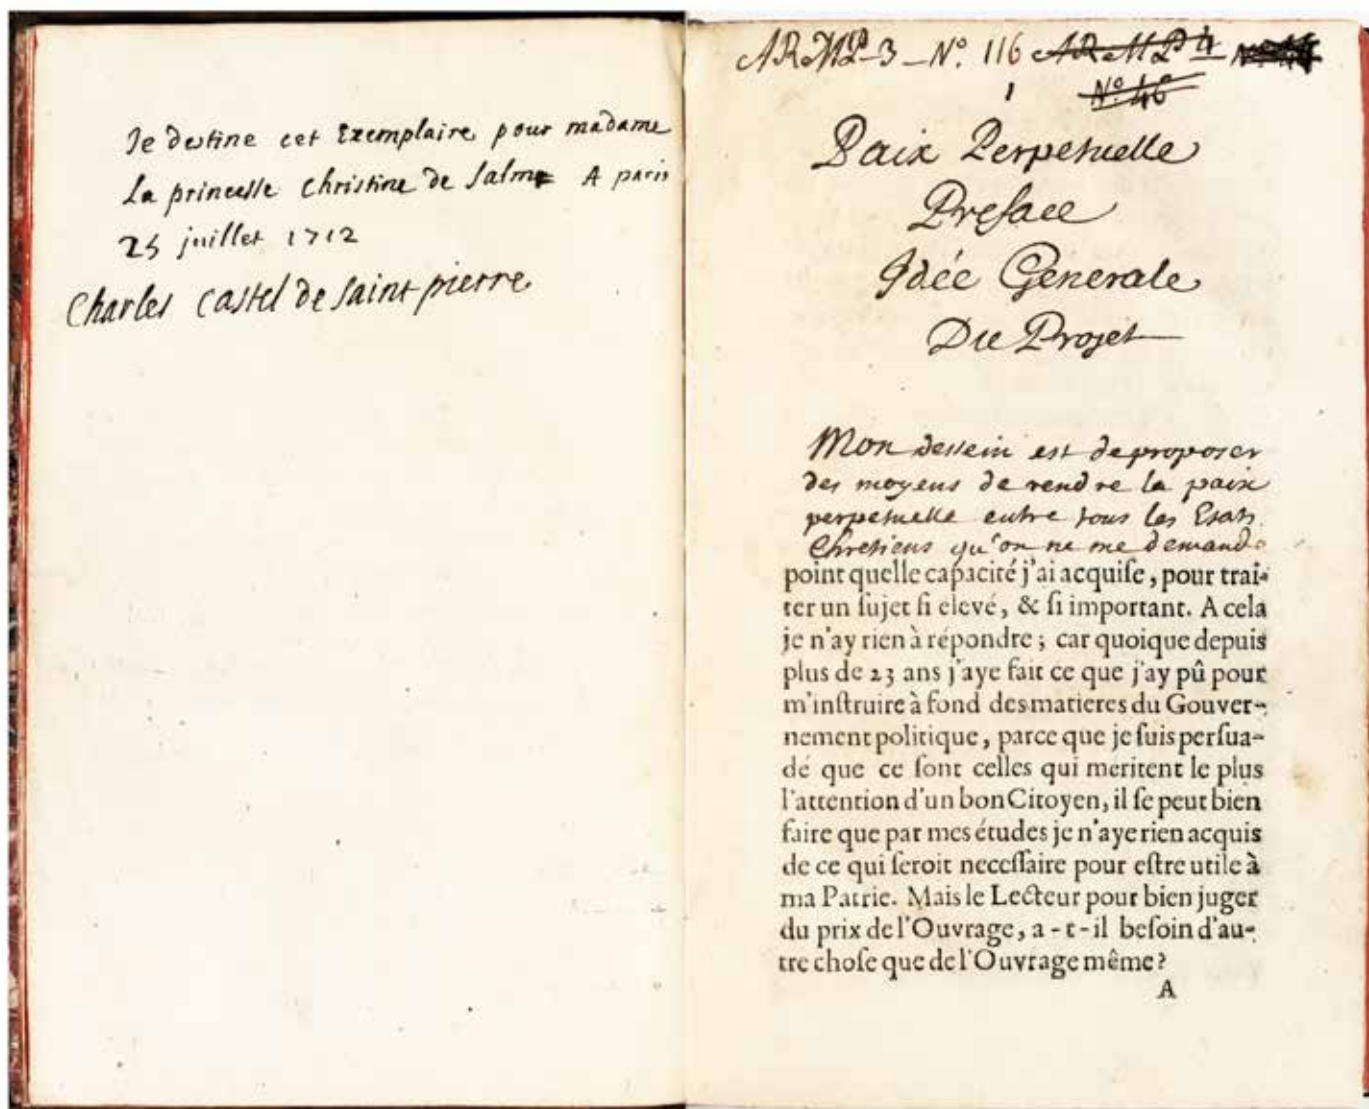 Je destine cet Exemplaire pour madame
La princesse Christine de Salm A paris
25 juillet 1712
Charles Castel de Saint pierre
ARMP-3-N°. 116 ARMP 4
1 N° 46
Paix Perpetuelle
Preface
Idée Generale
Du Projet
Mon dessein est de proposer
des moyens de rendre la paix
perpetuelle entre tous les Etats
Chretiens qu'on ne me demande
point quelle capacité j'ai acquiſe, pour trai-
ter un ſujet ſi elevé, & ſi important. A cela
je n'ay rien à répondre ; car quoique depuis
plus de 23 ans j'aye fait ce que j'ay pû pour
m'inſtruire à fond des matieres du Gouver-
nement politique, parce que je ſuis perſua-
dé que ce ſont celles qui meritent le plus
l'attention d'un bon Citoyen, il ſe peut bien
faire que par mes études je n'aye rien acquis
de ce qui ſeroit neceſſaire pour eſtre utile à
ma Patrie. Mais le Lecteur pour bien juger
du prix de l'Ouvrage, a-t-il beſoin d'au-
tre choſe que de l'Ouvrage même ?
A